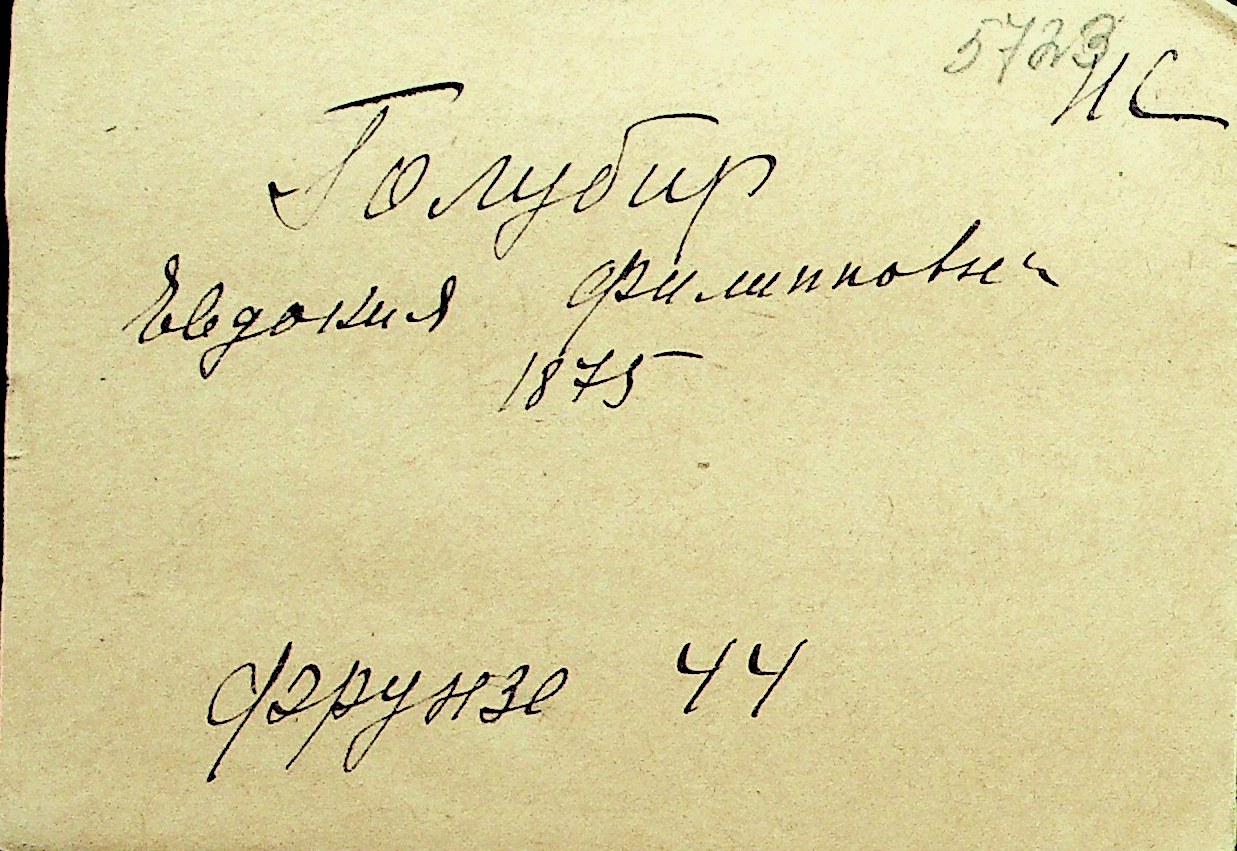 5723
НС
Голубир
Евдокия Филипповна
1875
Фрунзе 44